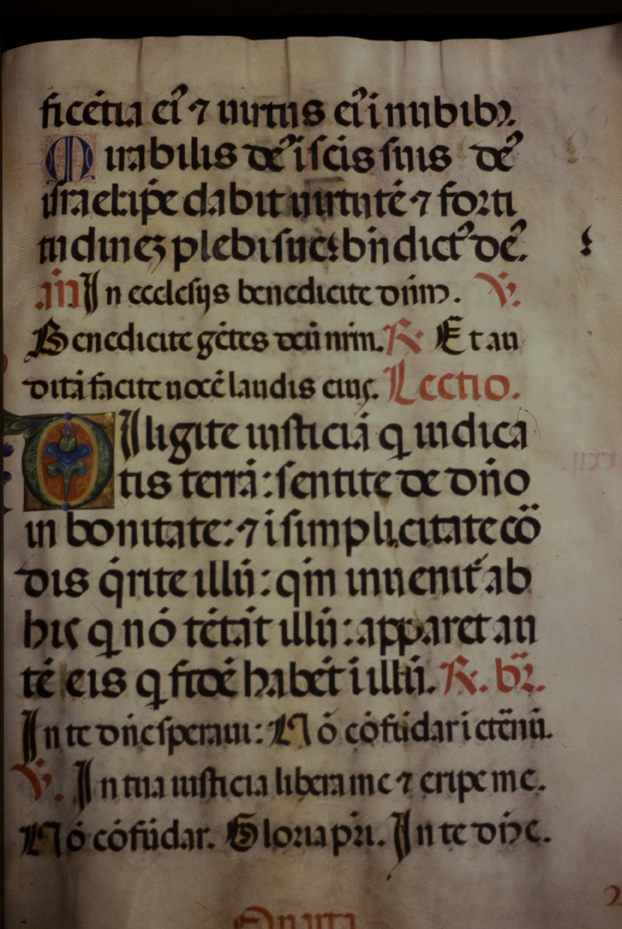 ficẽtia eiꝰ ⁊ uirtus eiꝰ i nubibꝫ.
Mirabilis deꝰ i scis suis deꝰ
israel ip̃e dabit uirtutẽ ⁊ forti
tudinẽ plebi sue: bñdictꝰ deꝰ.
añ In ecclesijs benedicite dñm. V.
Benedicite gẽtes deũ nrm̃. R Et au
ditã facite uocẽ laudis eiuꝰ. Lectio.
Diligite iusticiã q̃ iudica
tis terrã: sentite de dño
in bonitate: ⁊ i simplicitate cõ
dis q̃rite illũ: qm̃ inuenit̃ ab
his q̃ nõ tẽtãt illũ: apparet au
tẽ eis q̃ fidẽ habẽt ĩ illũ. R. br̃.
In te dñe speraui: Nõ cõfũdar i etẽnũ.
V. In tua iusticia libera me ⁊ eripe me.
Nõ cõfũdar. Gloria pr̃i. In te dñe.
Quarta